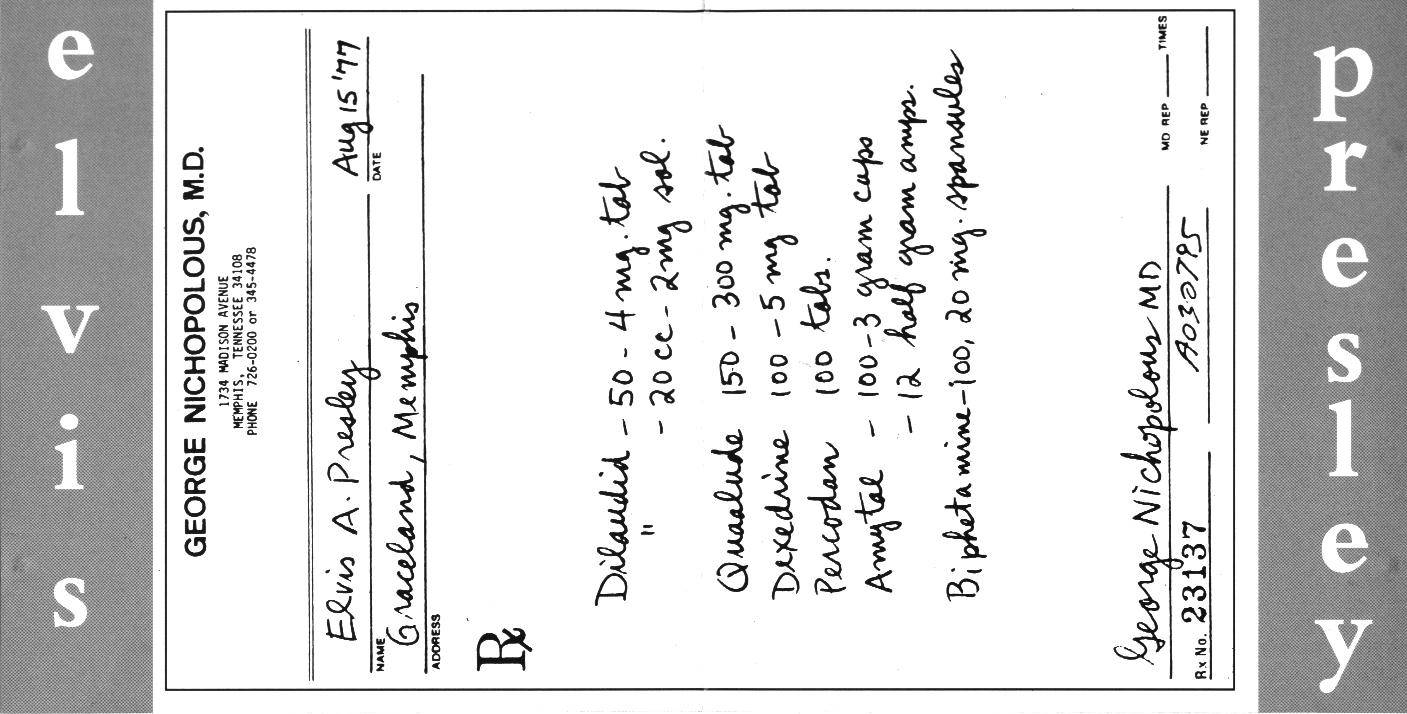 elvis
GEORGE NICHOPOLOUS, M.D.
1734 MADISON AVENUE
MEMPHIS, TENNESSEE 34108
PHONE 726-0200 or 345-4478
Elvis A. Presley Aug 15 '77
NAME DATE
Graceland, Memphis
ADDRESS
Rx
Dilaudid - 50 - 4 mg. tab
" - 20 cc - 2 mg sol.
Quaalude 150 - 300 mg. tab
Dexedrine 100 - 5 mg tab
Percodan 100 tabs.
Amytal - 100 - 3 gram caps
- 12 half gram amps.
Biphetamine - 100, 20 mg. spansules
George Nichopolous MD MD REP TIMES
Rx No. 23137 A030795 NE REP
presley